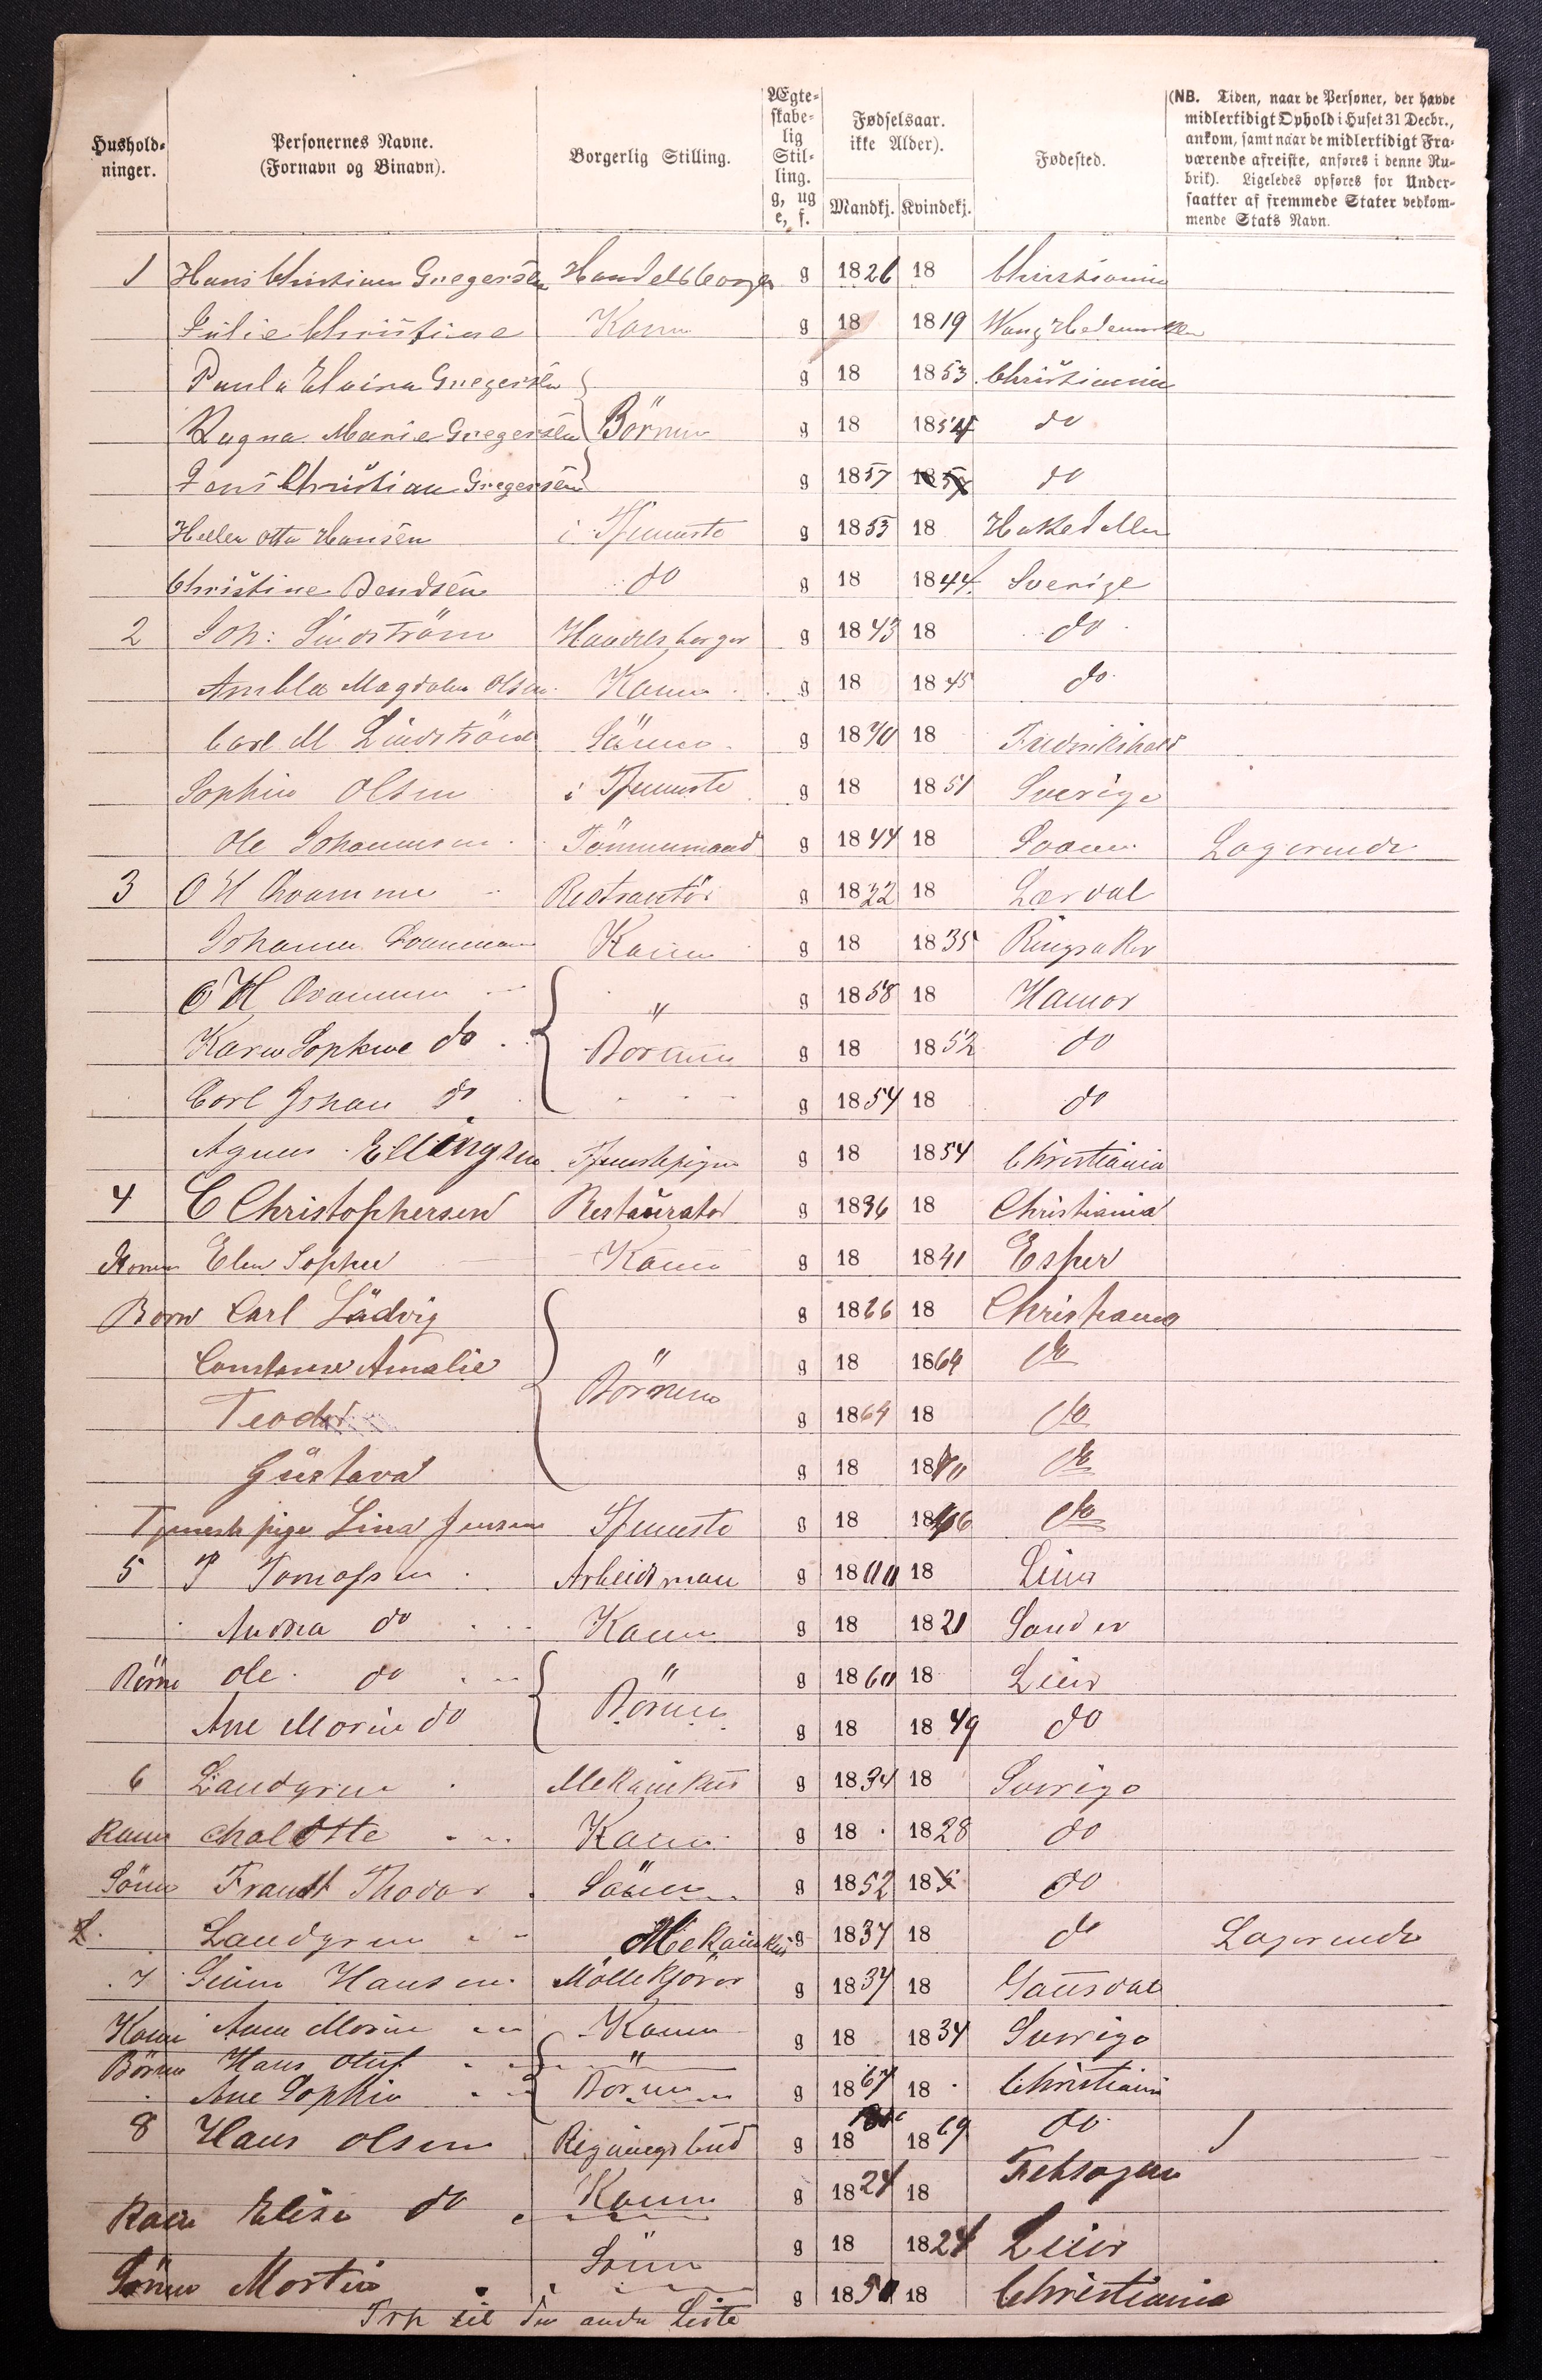 Hushold-ninger.
Personernes Navne.
(Fornavn og Binavn).
Borgerlig Stilling.
Ægte-skabe-lig Stil-ling.
g, ug
e, f.
Fødselsaar.
ikke Alder).
Mandkj. Kvindekj.
Fødested.
(NB. Tiden, naar de Personer, der havde
midlertidigt Ophold i Huset 31 Decbr.,
ankom, samt naar de midlertidigt Fra-
værende afreiste, anføres i denne Ru-
brik). Ligeledes opføres for Under-
saatter af fremmede Stater vedkom-
mende Stats Navn.
1 Hans Christian Gregersen Handelsborger g 1826 18 Christiania
Julie Christine Kone g 18 1819 Wang Hedemarken
Paula Elvina Gregersen g 18 1853 Christiania
Ragna Marie Gregersen Börnene g 18 1854 do
Jens Christian Gregersen g 1857 18 do
Otto Hansen i Tjeneste g 1853 18 Hakedalen
Christine Bendsen do g 18 1844 Sverige
2 Joh: Lindström Handelsborger g 1843 18 do
Magdalen Olsen Kone g 18 1845 do
Carl M Lindström Sönn g 1870 18 Fredrikshald
Sophie Olsen i Tjeneste g 18 1851 Sverige
Ole Johannesen Tömmemand g 1844 18 Logerende
3 O H Qvamme g 1832 18 Lærdal
Johanne Kone g 18 1835 Ringsaker
O H Qvamme " g 1858 18 Hamar
Karen Sophie do Börnene g 18 1852 do
Carl Johan do g 1854 18 do
Agnes Ellingsen Tjenestepige g 18 1854 Christiania
4 C Christophersen Restaurator g 1836 18 Christiania
Konen Elen Sophie Kone g 18 1841 Esper
Born Carl Ludvig g 1866 18 Christiania
Constanse Amalie " g 18 1864 do
Teodor Börnene g 1864 18 do
Gustava g 18 1870 do
Tjeneste pige Lina Jensen Tjeneste g 18 do
5 P Tomassen Arbeidsman g 1800 18 Lier
Andrea do Kone g 18 1821 Sander
Börn Ole do " g 1860 18 Lier
Ane Marie do Börnene g 18 1849 do
6 Landgren Mekanikus g 1834 18 Sverige
Kone Chalotte Kone g 18 1828 do
Sönn Frandt Thodor Sönn g 1852 18 do
L. Landgren Mekanikus g 1837 18 do Logerende
7 Hansen Möllekjörer g 1837 18 Gausdal
Kone Anne Marie Kone g 18 1834 Sverige
Börn Hans Oluf "
Ane Sophie Börnene g 1867 18 Christiania
g 18 1869 do
8 Hans Olsen Regningsbud g 1824 18 Fetsogn
Kone Elise do Kone g 18 1824 Lier
Sönn Martin Sönn g 1850 18 Christiania
til den anden Liste